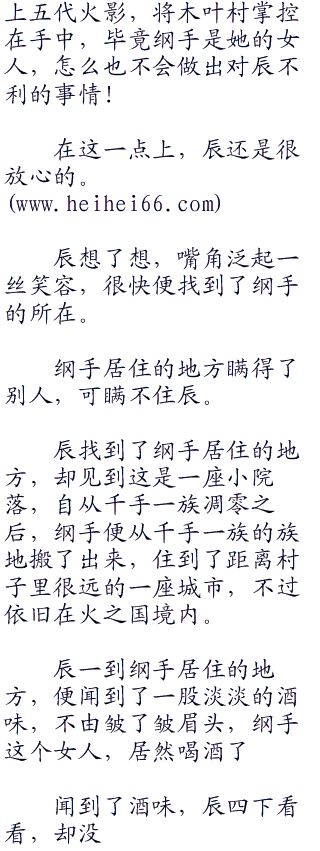 上五代火影，将木叶村掌控
在手中，毕竟纲手是她的女
人，怎么也不会做出对辰不
利的事情！
在这一点上，辰还是很
放心的。
(www.heihei66.com)
辰想了想，嘴角泛起一
丝笑容，很快便找到了纲手
的所在。
纲手居住的地方瞒得了
别人，可瞒不住辰。
辰找到了纲手居住的地
方，却见到这是一座小院
落，自从千手一族凋零之
后，纲手便从千手一族的族
地搬了出来，住到了距离村
子里很远的一座城市，不过
依旧在火之国境内。
辰一到纲手居住的地
方，便闻到了一股淡淡的酒
味，不由皱了皱眉头，纲手
这个女人，居然喝酒了
闻到了酒味，辰四下看
看，却没